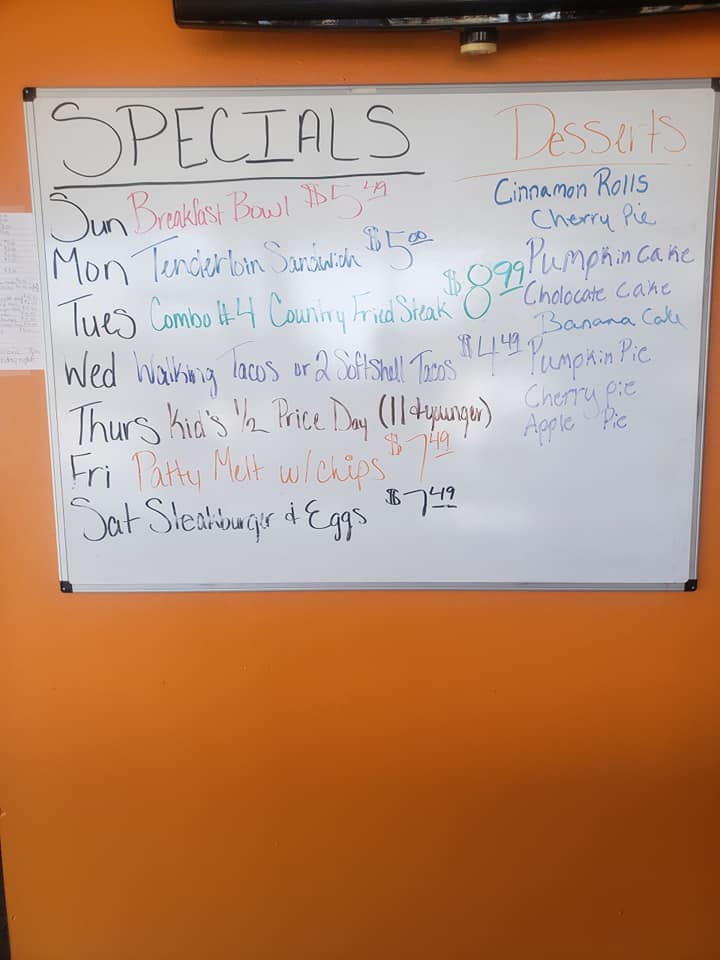 SPECIALS
Sun Breakfast Bowl $5.49
Mon Tenderloin Sandwich $5.00
Tues Combo #4 Country Fried Steak $8.99
Wed Walking Tacos or 2 Softshell Tacos $4.49
Thurs Kid's 1/2 Price Day (11 & younger)
Fri Patty Melt w/chips $7.49
Sat Steakburger & Eggs $7.49
Desserts
Cinnamon Rolls
Cherry Pie
Pumpkin Cake
Cholocate Cake
Banana Cake
Pumpkin Pie
Cherry pie
Apple Pie